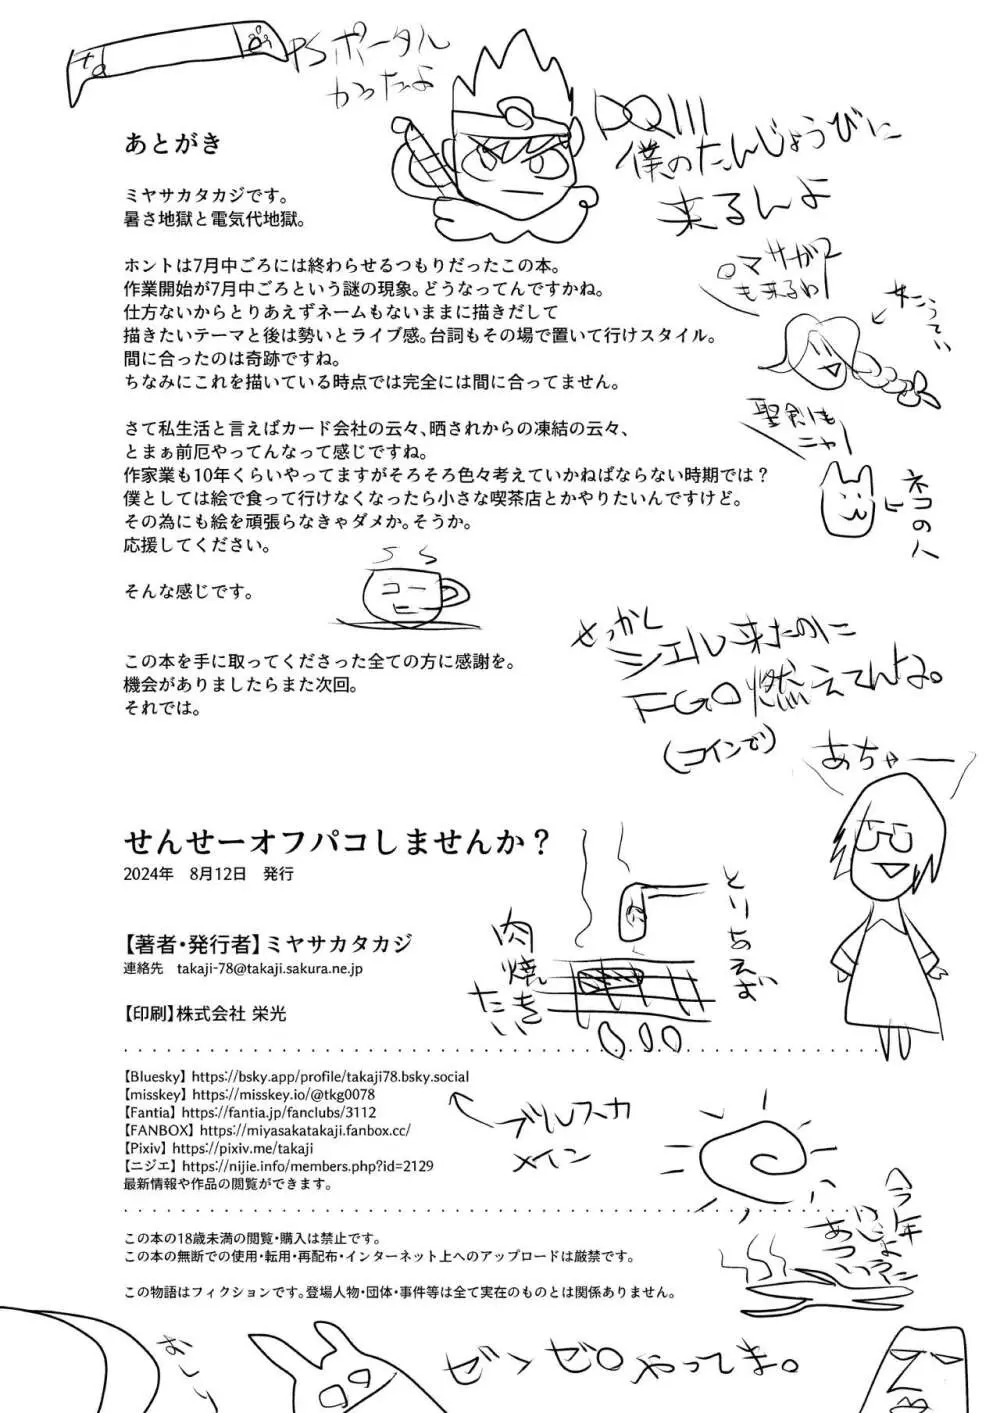 PSポータル
かったよ
DQIII
僕のたんじょうびに
来るんよ
あとがき
ミヤサカタカジです。
暑さ地獄と電気代地獄。
ホントは7月中ごろには終わらせるつもりだったこの本。
作業開始が7月中ごろという謎の現象。どうなってんですかね。
仕方ないからとりあえずネームもないままに描きだして
描きたいテーマと後は勢いとライブ感。台詞もその場で置いて行けスタイル。
間に合ったのは奇跡ですね。
ちなみにこれを描いている時点では完全には間に合ってません。
ロマサガ2
も来るわ!
さて私生活と言えばカード会社の云々、晒されからの凍結の云々、
とまぁ前厄やってんなって感じですね。
作家業も10年くらいやってますがそろそろ色々考えていかねばならない時期では?
僕としては絵で食って行けなくなったら小さな喫茶店とかやりたいんですけど。
その為にも絵を頑張らなきゃダメか。そうか。
応援してください。
聖剣も
ニャー
ネコの人
そんな感じです。
コー
ヒー
この本を手に取ってくださった全ての方に感謝を。
機会がありましたらまた次回。
それでは。
せっかく
シエル来たのに
FGO燃えてんよ。
(コインで)
あちゃー
せんせーオフパコしませんか?
2024年 8月12日 発行
【著者・発行者】ミヤサカタカジ
連絡先 takaji-78@takaji.sakura.ne.jp
【印刷】株式会社 栄光
とりちえず
肉
焼き
たい
【Bluesky】https://bsky.app/profile/takaji78.bsky.social
【misskey】https://misskey.io/@tkg0078
【Fantia】https://fantia.jp/fanclubs/3112
【FANBOX】https://miyasakatakaji.fanbox.cc/
【Pixiv】https://pixiv.me/takaji
【ニジエ】https://nijie.info/members.php?id=2129
最新情報や作品の閲覧ができます。
ブルスカ
メイン
今年
この本の18歳未満の閲覧・購入は禁止です。
この本の無断での使用・転用・再配布・インターネット上へのアップロードは厳禁です。
この物語はフィクションです。登場人物・団体・事件等は全て実在のものとは関係ありません。
おしり
ゼンゼロやってま。